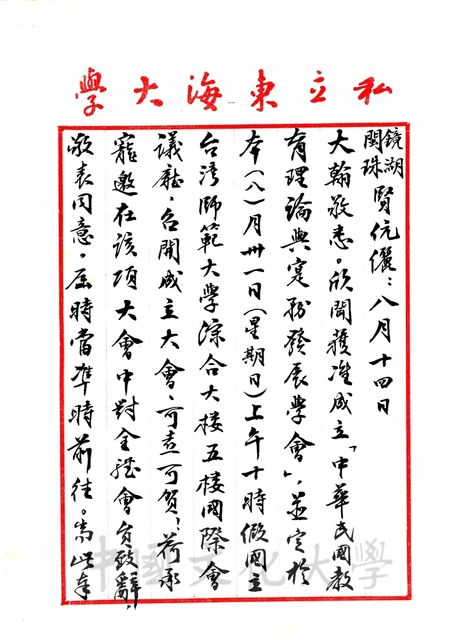 私立東海大學
鏡湖
閔珠 賢伉儷:八月十四日
大翰敬悉。欣聞獲准成立「中華民國教
育理論與實務發展學會」,並定於
本(八)月卅一日(星期日)上午十時假國立
台灣師範大學綜合大楼五楼國際會
議廳,召開成立大會,可喜可賀!荷承
寵邀在該項大會中對全體會員致辭,
敬表同意。屆時當準時前往。耑此奉
中國文化大學